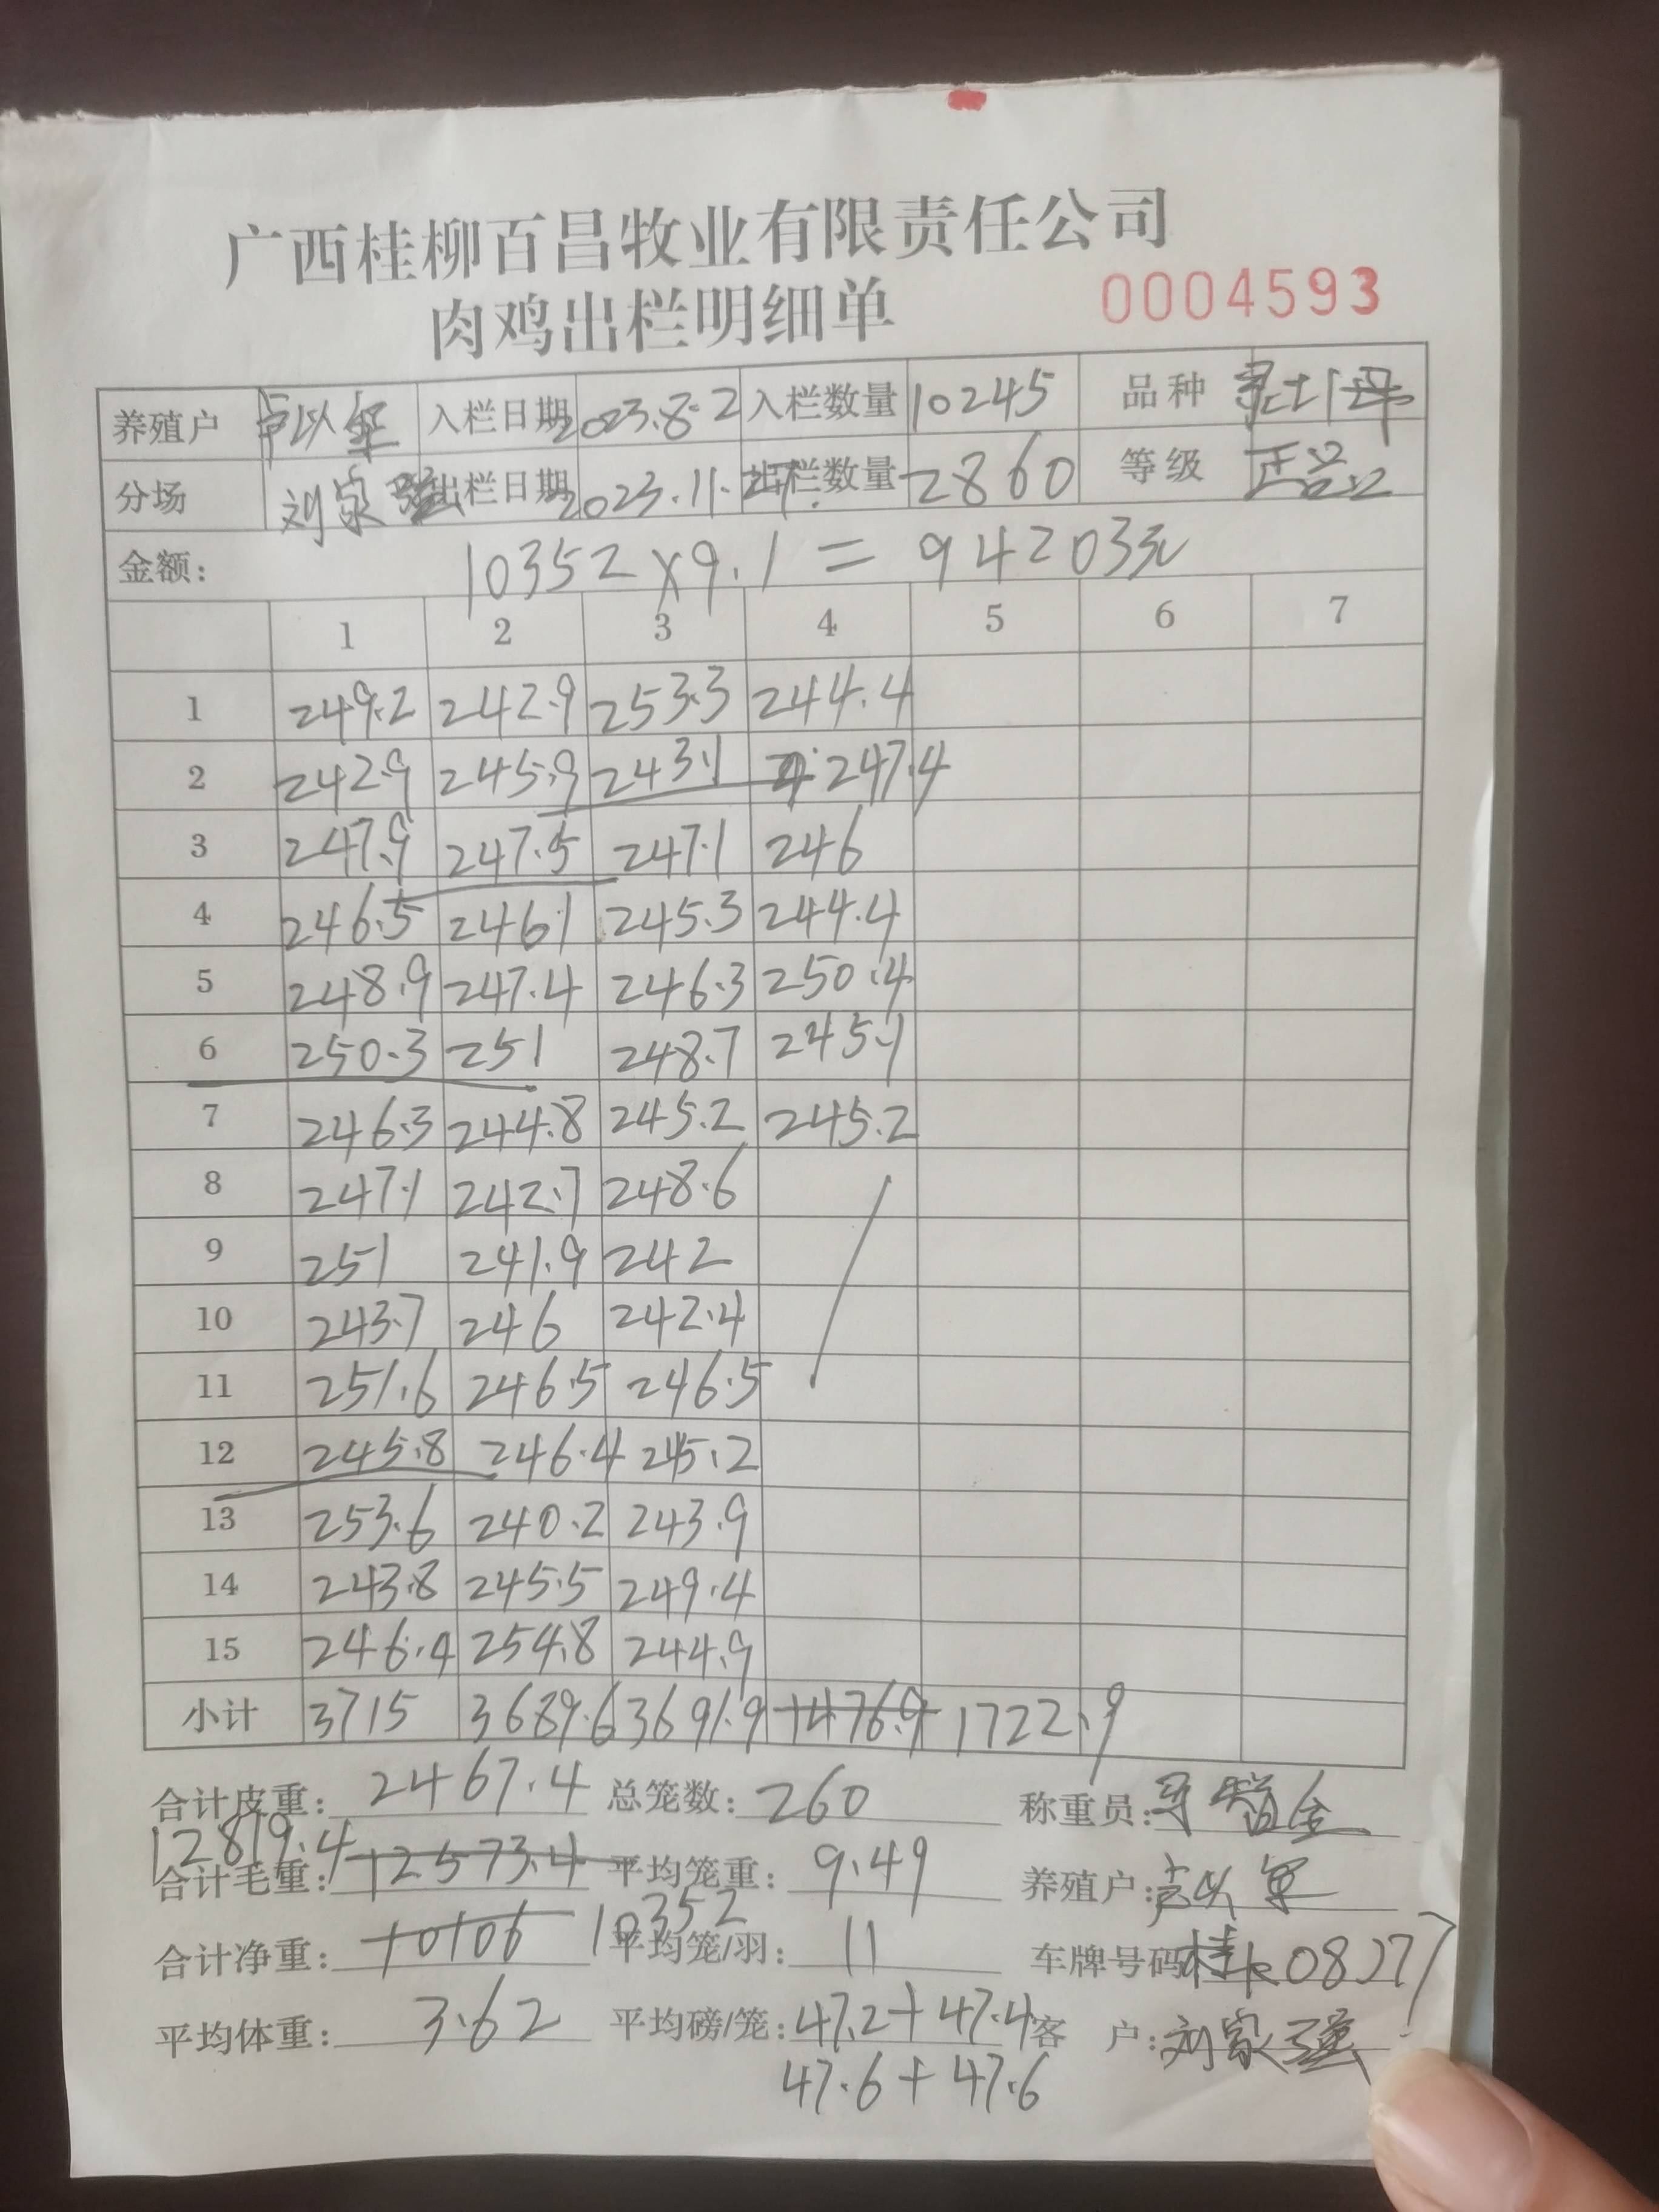 广西桂柳百昌牧业有限责任公司
肉鸡出栏明细单 0004593
养殖户 卢以军 入栏日期 2023.8.2 入栏数量 10245 品种
分场 刘家强 出栏日期 2023.11.27. 出栏数量 2860 等级 正品
金额: 10352×9.1=94203元
1 2 3 4 5 6 7
1 249.2 242.9 253.3 244.4
2 242.9 245.9 243.1 247.4
3 247.9 247.5 247.1 246
4 246.5 246.1 245.3 244.4
5 248.9 247.4 246.3 250.4
6 250.3 251 248.7 245.1
7 246.3 244.8 245.2 245.2
8 247.1 242.7 248.6
9 251 241.9 242
10 243.7 246 242.4
11 251.6 246.5 246.5
12 245.8 246.4 245.2
13 253.6 240.2 243.9
14 243.8 245.5 249.4
15 246.4 254.8 244.9
小计 3715 3689.6 3691.9 1476.9 1722.9
合计皮重: 2467.4 总笼数: 260 称重员:
12819.4
合计毛重: 12573.4 平均笼重: 9.49 养殖户: 卢以军
合计净重: 10106 10352 平均笼/羽: 11 车牌号码 桂K08277
平均体重: 3.62 平均磅/笼: 47.2+47.4 客 户: 刘家强
47.6+47.6